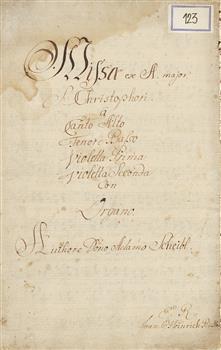 123
Missa ex A. major.
S. Christophori.
à
Canto Alto
Tenore Basso
Violetta Prima
Violetta Seconda
Con
Organo.
Authore Dño Adamo Scheibl.